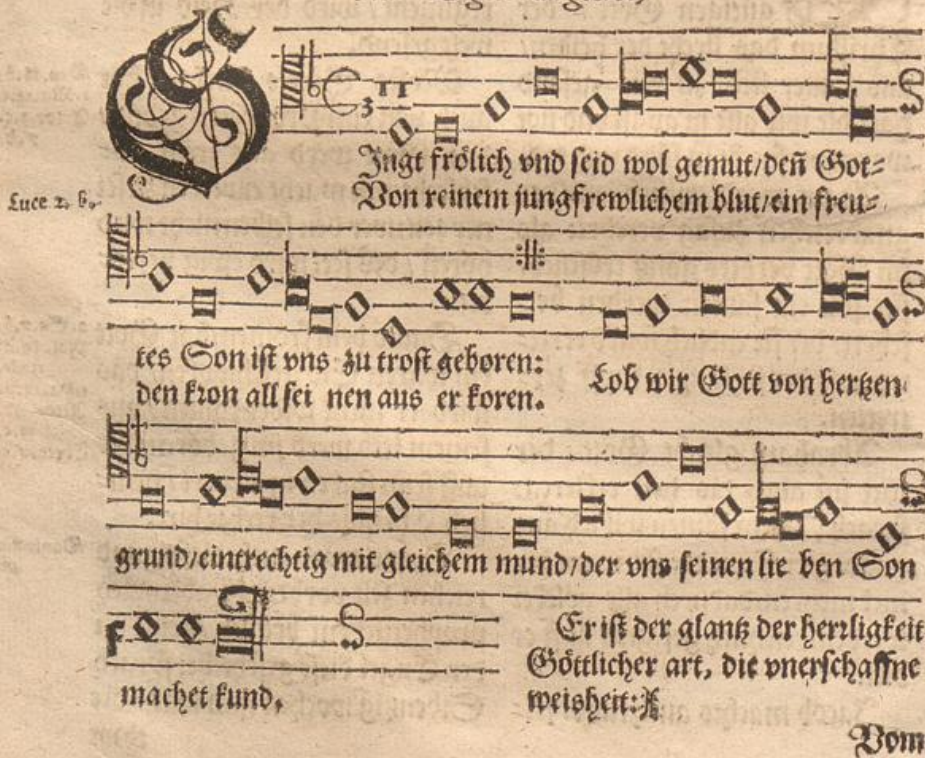 SJngt frölich vnd seid wol gemut/deñ Got=
Von reinem jungfrewlichem blut/ein freu=
Luce 2. b.
tes Son ist vns zu trost geboren:
den kron all sei nen aus er koren.
Lob wir Gott von hertzen
grund/eintrechtig mit gleichem mund/der vns seinen lie ben Son
machet kund.
Er ist der glantz der herrligkeit
Göttlicher art, die vnerschaffne
weisheit:
Vom